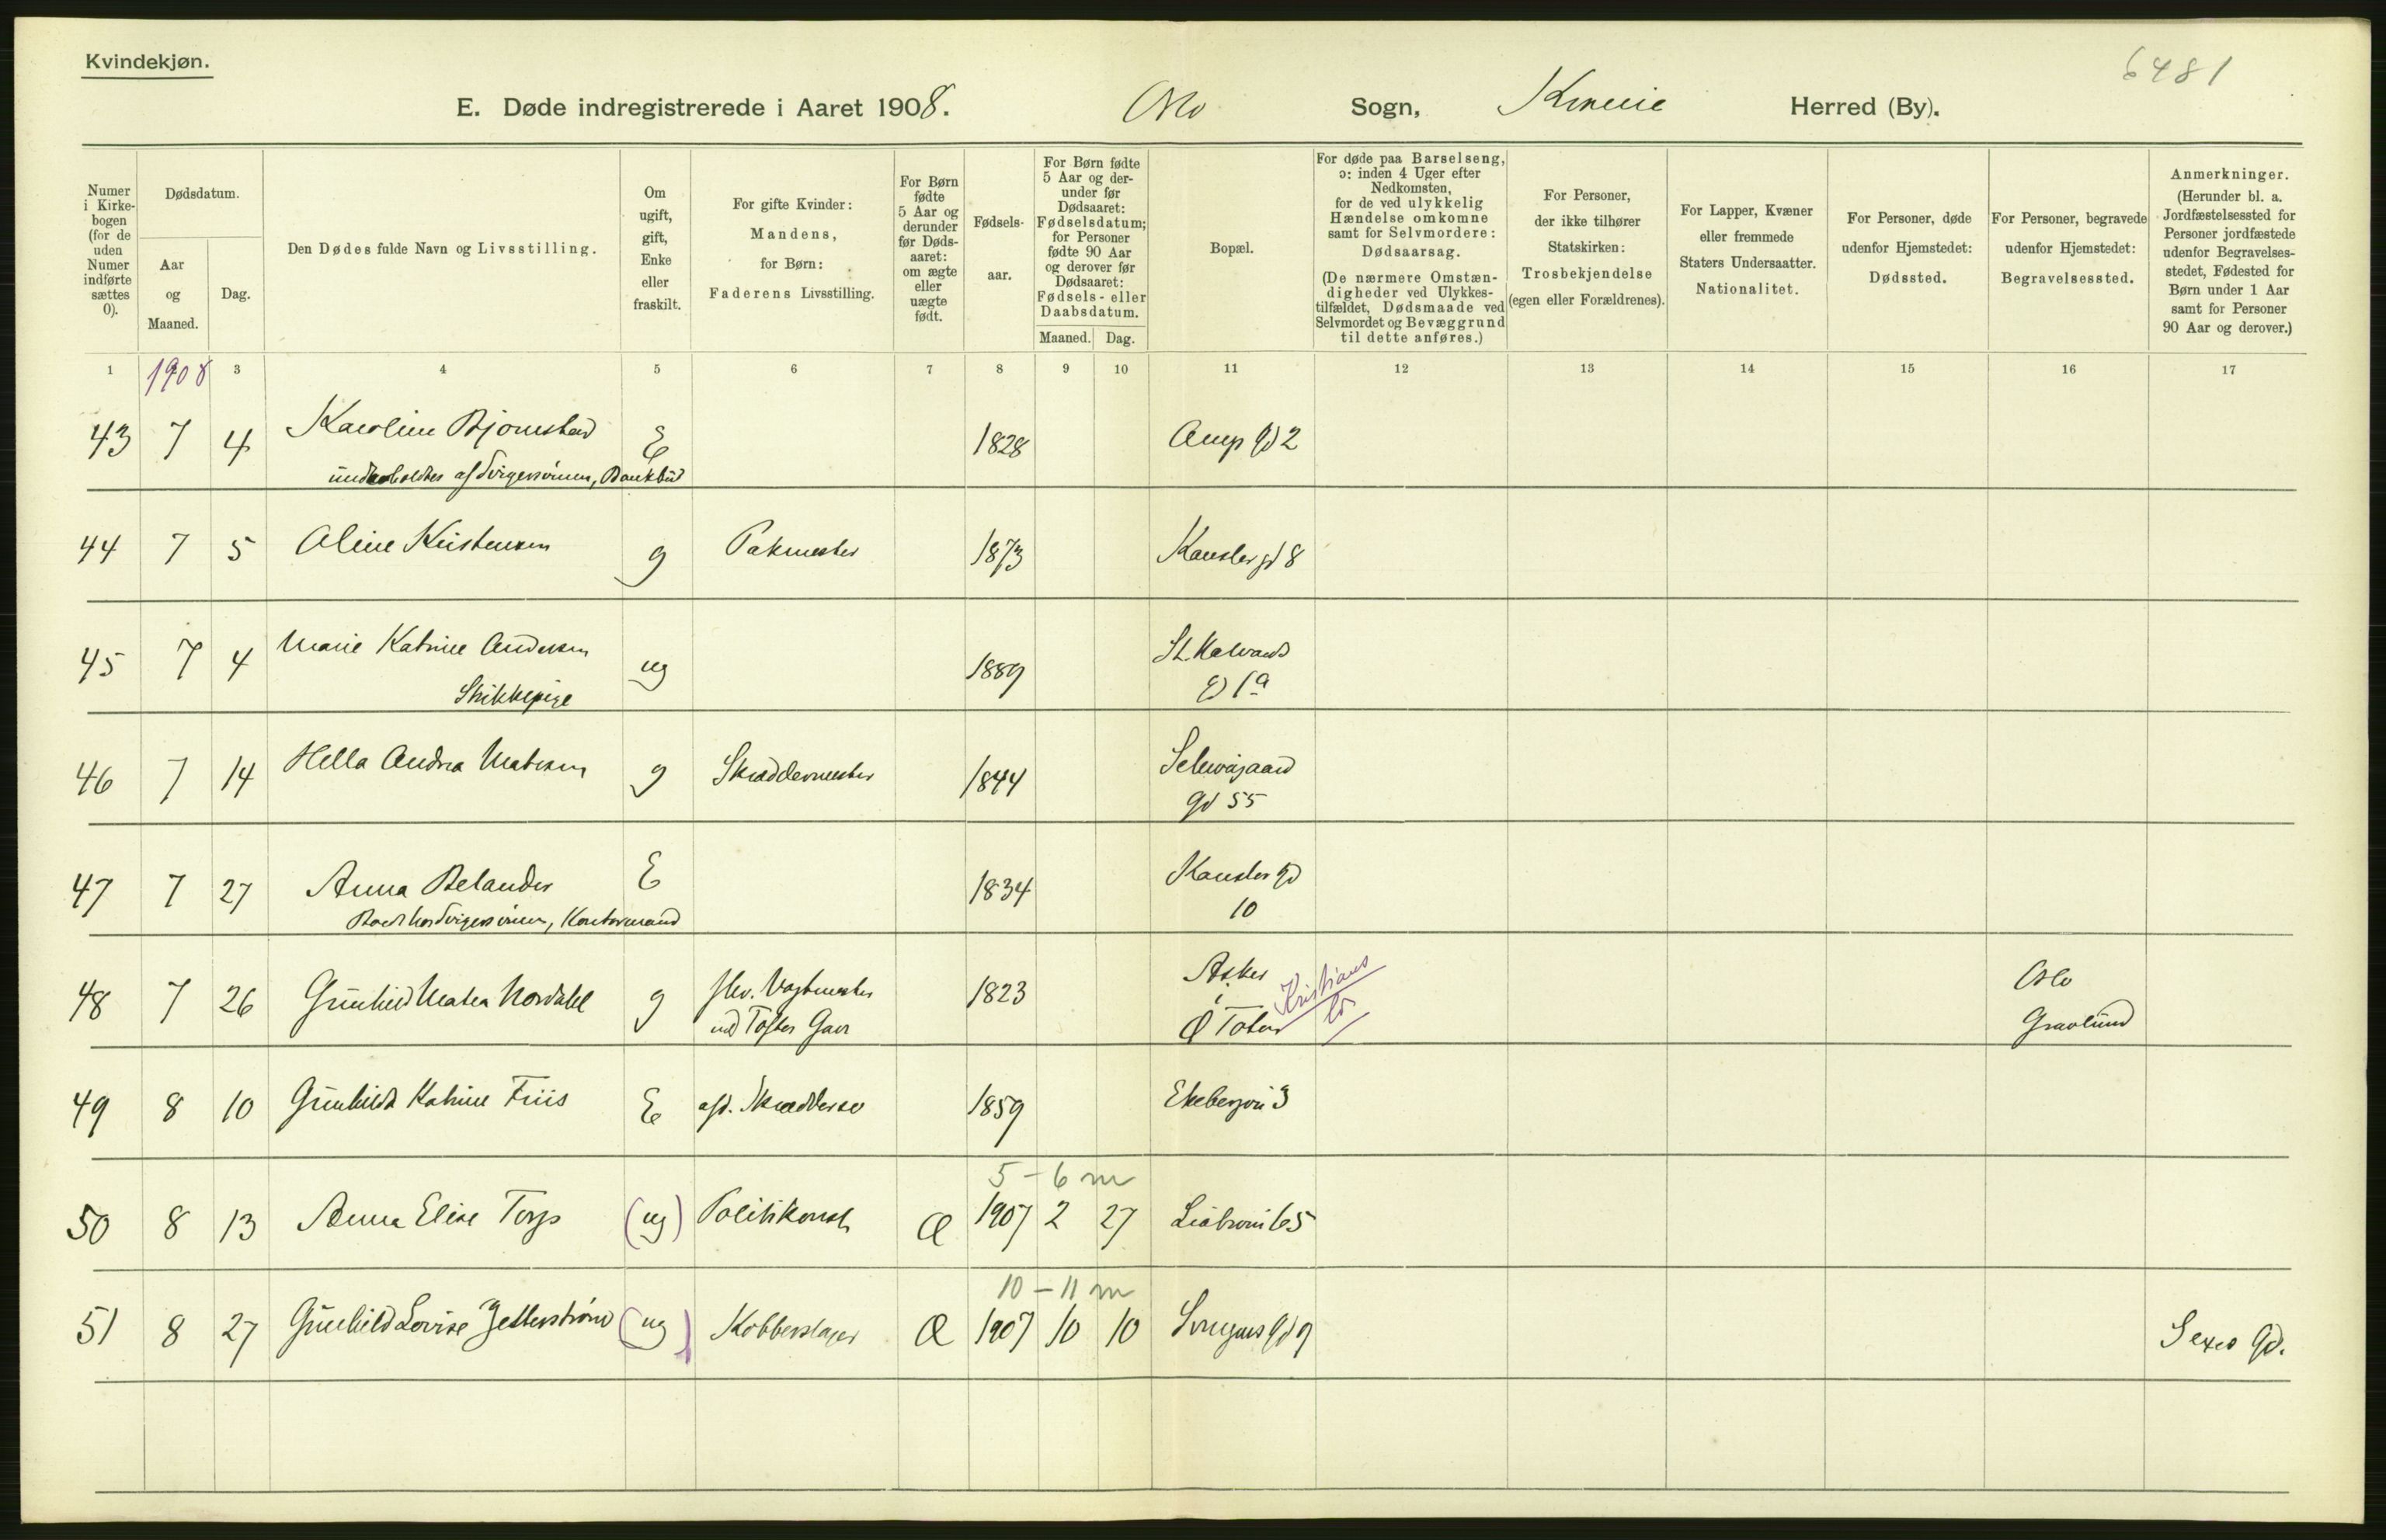 Kvindekjøn.
6481
E. Døde indregistrerede i Aaret 1908. Oslo Sogn, Herred (By).
Numer i Kirkebogen (for de uden Numer indførte sættes 0).
Dødsdatum.
Aar og Maaned.
Dag.
Den Dødes fulde Navn og Livsstilling.
Om ugift, gift, Enke eller fraskilt.
For gifte Kvinder: Mandens, for Børn: Faderens Livsstilling.
For Børn fødte 5 Aar og derunder før Dødsaaret: om ægte eller uægte født.
Fødselsaar.
For Børn fødte 5 Aar og derunder før Dødsaaret: Fødselsdatum; for Personer fødte 90 Aar og derover før Dødsaaret: Fødsels- eller Daabsdatum.
Maaned. Dag.
Bopæl.
For døde paa Barselseng, ɔ: inden 4 Uger efter Nedkomsten, for de ved ulykkelig Hændelse omkomne samt for Selvmordere: Dødsaarsag. (De nærmere Omstændigheder ved Ulykkestilfældet, Dødsmaade ved Selvmordet og Bevæggrund til dette anføres.)
For Personer, der ikke tilhører Statskirken: Trosbekjendelse (egen eller Forældrenes).
For Lapper, Kvæner eller fremmede Staters Undersaatter. Nationalitet.
For Personer, døde udenfor Hjemstedet: Dødssted.
For Personer, begravede udenfor Hjemstedet: Begravelsessted.
Anmerkninger. (Herunder bl. a. Jordfæstelsessted for Personer jordfæstede udenfor Begravelsesstedet, Fødested for Børn under 1 Aar samt for Personer 90 Aar og derover.)
1 1908 3 4 5 6 7 8 9 10 11 12 13 14 15 16 17
43 7 4 Karoline Bjørnstad E 1828 Arups gd 2
underholdtes af Svigersønnen, Bankbud
44 7 5 Aline Kristensen g Pakmester 1873 Kansler gd 8
45 7 4 Marie Katrine Andersen ug 1889 St. Halvards
Strikkepige gd 1a
46 7 14 Hella Andrea Matesen g Skræddermester 1844 Schweigaard
gd 55
47 7 27 Anna Belander E 1834 Kansler gd
Boede hos Svigersønnen, Kontormand 10
48 7 26 Gunhild Mathea Nordahl g Vagtmester 1823 Kristians Oslo
Ø Toten Gravlund
49 8 10 Gunhild Katrine Friis E afd. Skrædder 1859 Ekebergvei 3
5 - 6 m
50 8 13 Anna Elise Torp (ug) Politikonst Æ 1907 2 27 Liabrovei 65
10 - 11 m
51 8 27 Gunhild Lovise Zetterstrøm (ug) Kobberslager Æ 1907 10 10 gd 9 Sexes gd.